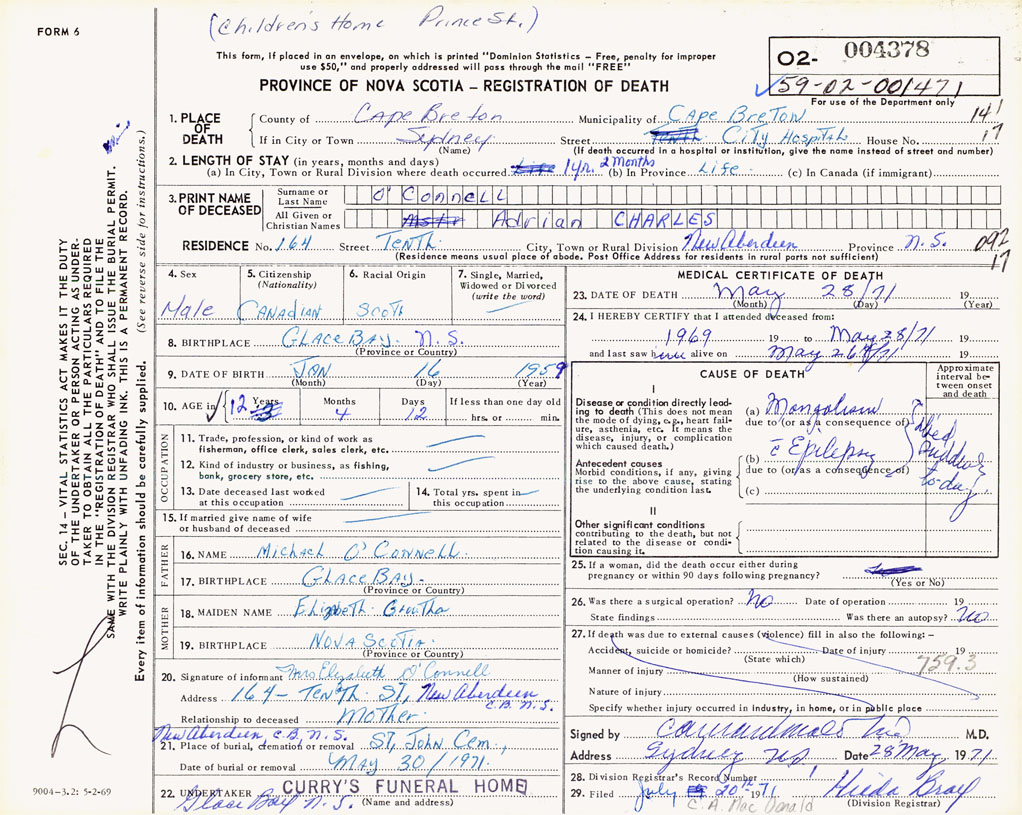 (Children's Home Prince St.)
FORM 6
This form, if placed in an envelope, on which is printed "Dominion Statistics — Free, penalty for improper
use $50," and properly addressed will pass through the mail "FREE"
02- 004378
59-02-001471
For use of the Department only
PROVINCE OF NOVA SCOTIA — REGISTRATION OF DEATH
1. PLACE OF DEATH
County of Cape Breton Municipality of Cape Breton 141
If in City or Town Sydney Street Tenth City Hospital House No. 17
(Name) (If death occurred in a hospital or institution, give the name instead of street and number)
2. LENGTH OF STAY (in years, months and days)
(a) In City, Town or Rural Division where death occurred Life 1 yr. 2 Months (b) In Province Life (c) In Canada (if immigrant)
3. PRINT NAME OF DECEASED
Surname or Last Name O'Connell
All Given or Christian Names Mstr Adrian CHARLES
RESIDENCE No. 164 Street Tenth City, Town or Rural Division New Aberdeen Province N.S. 092
17
(Residence means usual place of abode. Post Office Address for residents in rural parts not sufficient)
4. Sex Male
5. Citizenship (Nationality) CANADIAN
6. Racial Origin Scoth
7. Single, Married, Widowed or Divorced (write the word)
8. BIRTHPLACE GLACE BAY. N.S.
(Province or Country)
9. DATE OF BIRTH JAN 16 1959
(Month) (Day) (Year)
10. AGE in 12 Years 4 Months 12 Days
If less than one day old
hrs. or min.
OCCUPATION
11. Trade, profession, or kind of work as
fisherman, office clerk, sales clerk, etc.
12. Kind of industry or business, as fishing,
bank, grocery store, etc.
13. Date deceased last worked
at this occupation
14. Total yrs. spent in
this occupation
15. If married give name of wife
or husband of deceased
FATHER
16. NAME Michael O'Connell
17. BIRTHPLACE GLACE BAY-
(Province or Country)
MOTHER
18. MAIDEN NAME Elizabeth
19. BIRTHPLACE NOVA SCOTIA
(Province or Country)
20. Signature of informant Mrs Elizabeth O'Connell
Address 164- Tenth St, New Aberdeen
C.B. N.S.
Relationship to deceased Mother
New Aberdeen C.B. N.S.
21. Place of burial, cremation or removal St, John Cem,
Date of burial or removal MAY 30/1971.
22. UNDERTAKER CURRY'S FUNERAL HOME
Glace Bay N.S. (Name and address)
MEDICAL CERTIFICATE OF DEATH
23. DATE OF DEATH May 28/71 19
(Month) (Day) (Year)
24. I HEREBY CERTIFY that I attended deceased from:
1969 19 to May 28/71
and last saw him alive on May 26th/71 19
CAUSE OF DEATH
Approximate interval between onset and death
I
Disease or condition directly leading to death (This does not mean
the mode of dying, e.g., heart failure, asthenia, etc. It means the
disease, injury, or complication
which caused death.)
(a) Mongolism
due to (or as a consequence of)
Antecedent causes
Morbid conditions, if any, giving
rise to the above cause, stating
the underlying condition last.
(b) c̄ Epilepsy
due to (or as a consequence of)
(c)
died
suddenly
today.
II
Other significant conditions
contributing to the death, but not
related to the disease or condition causing it.
25. If a woman, did the death occur either during
pregnancy or within 90 days following pregnancy?
(Yes or No)
26. Was there a surgical operation? No Date of operation 19
State findings Was there an autopsy? No
27. If death was due to external causes (violence) fill in also the following: —
Accident, suicide or homicide? Date of injury 19
(State which)
759.3
Manner of injury
(How sustained)
Nature of injury
Specify whether injury occurred in industry, in home, or in public place
Signed by M.D.
Address Sydney NS Date 28 May 1971
28. Division Registrar's Record Number
29. Filed July 20th 1971 Hilda Bray
C. A. MacDonald (Division Registrar)
SEC. 14 — VITAL STATISTICS ACT MAKES IT THE DUTY
OF THE UNDERTAKER OR PERSON ACTING AS UNDERTAKER TO OBTAIN ALL THE PARTICULARS REQUIRED
IN THE "REGISTRATION OF DEATH" AND TO FILE THE
SAME WITH THE DIVISION REGISTRAR WHO SHALL ISSUE THE BURIAL PERMIT.
WRITE PLAINLY WITH UNFADING INK. THIS IS A PERMANENT RECORD.
Every item of information should be carefully supplied. (See reverse side for instructions.)
9004-3.2: 5-2-69